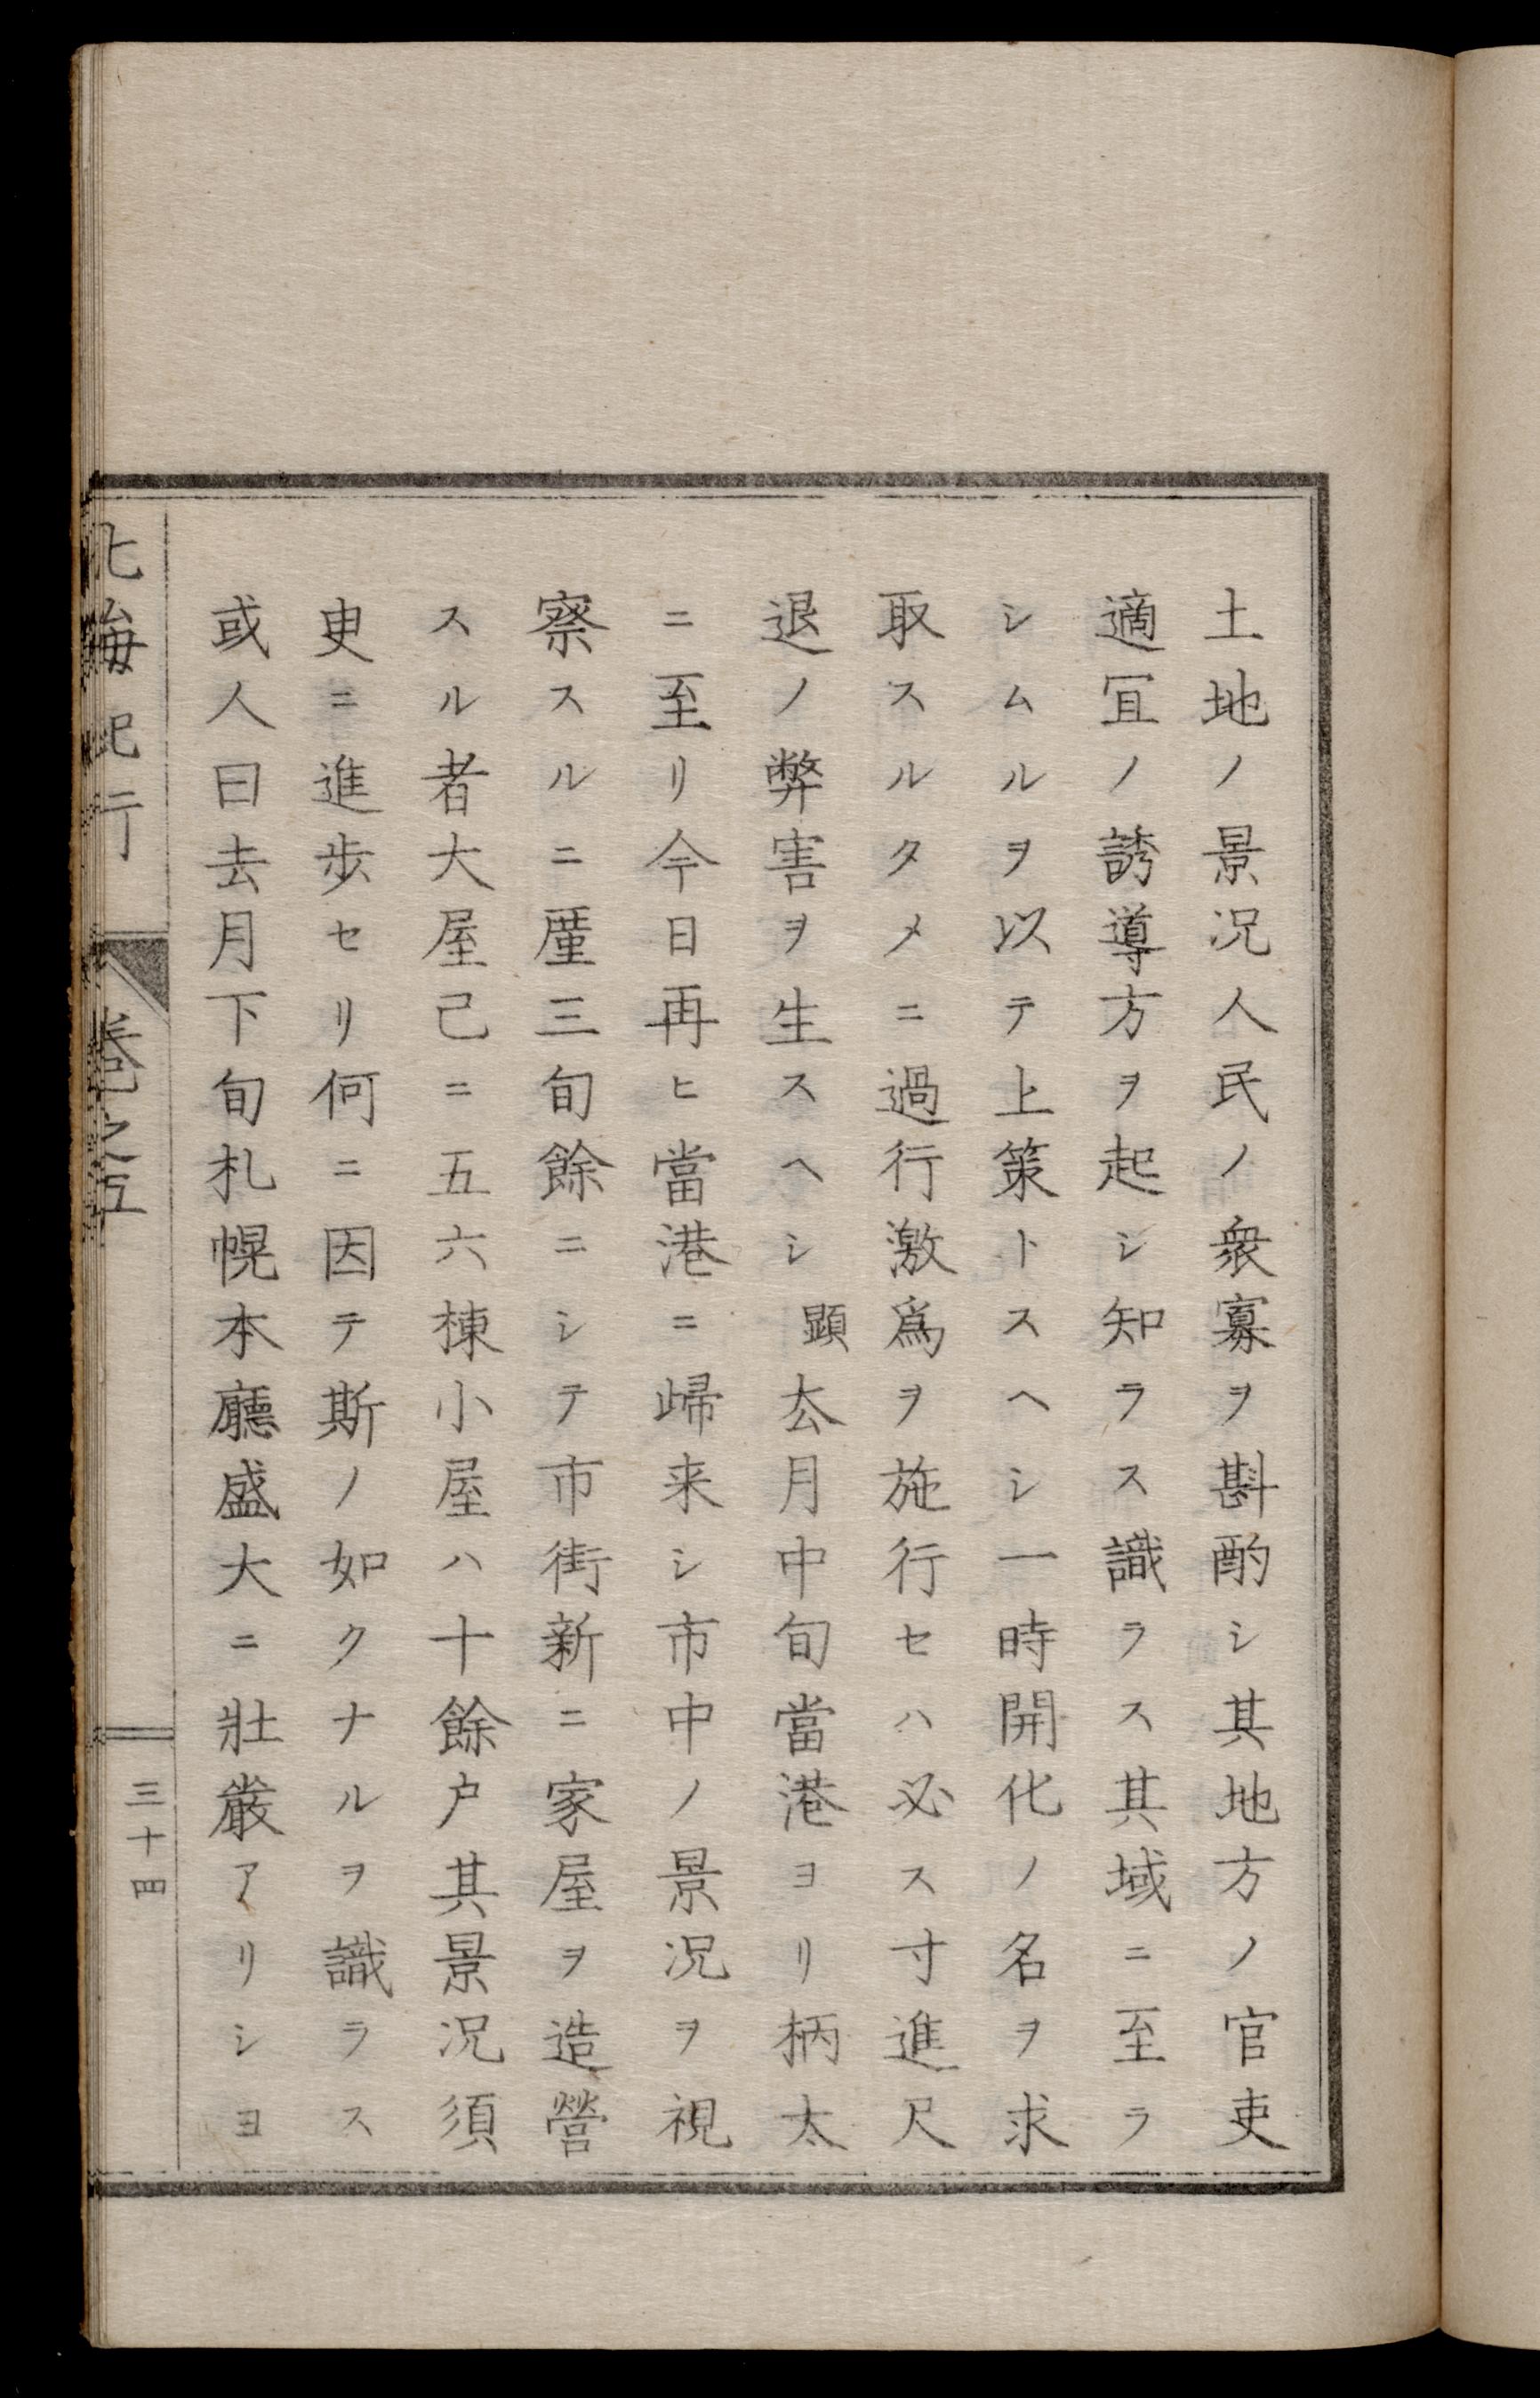 土地ノ景况人民ノ衆寡ヲ斟酌シ其地方ノ官吏
適宜ノ誘導方ヲ起シ知ラス識ラス其域ニ至ラ
シムルヲ以テ上策トスヘシ一時開化ノ名ヲ求
取スルタメニ過行激爲ヲ施行セハ必ス寸進尺
退ノ弊害ヲ生スヘシ顕厺月中旬當港ヨリ柄太
ニ至リ今日再ヒ當港ニ歸来シ市中ノ景况ヲ視
察スルニ厪三旬餘ニシテ市街新ニ家屋ヲ造營
スル者大屋己ニ五六棟小屋ハ十餘户其景况須
更ニ進歩セリ何ニ因テ斯ノ如クナルヲ識ラス
或人曰去月下旬札幌本廳盛大ニ壯嚴アリシヨ
北海紀行
卷之五
三十四